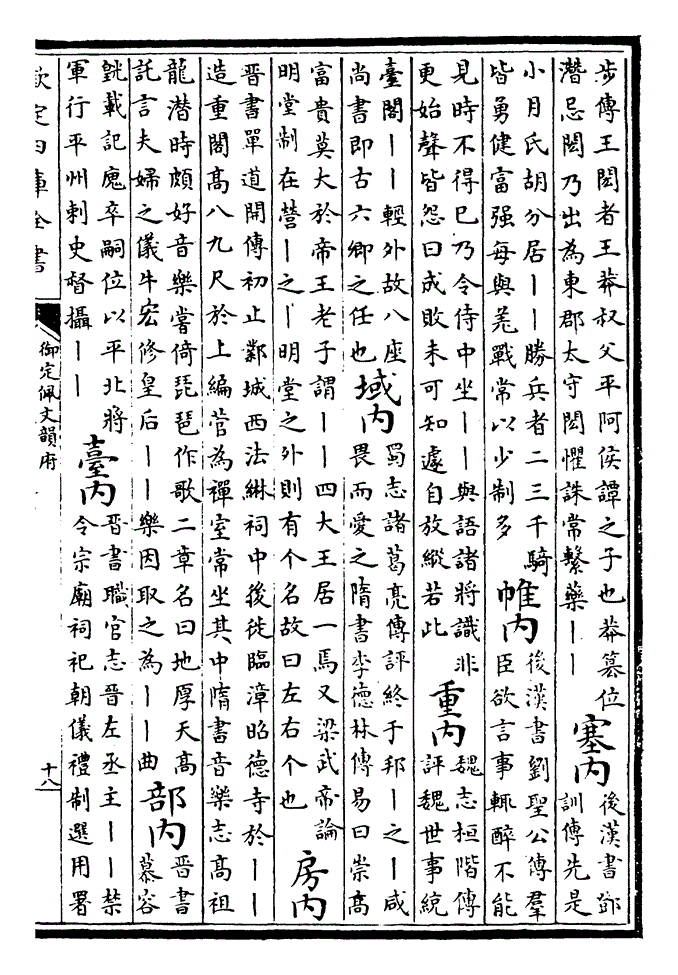 步傳王閎者王莽叔父平阿侯譚之子也莽簒位
潛忌閎乃出為東郡太守閎懼誅常繫藥丨丨
塞内
後漢書鄧
訓傳先是
小月氏胡分居丨丨勝兵者二三千騎
皆勇健富强每與羌戰常以少制多
帷内
後漢書劉聖公傳羣
臣欲言事輒醉不能
見時不得已乃令侍中坐丨丨與語諸將識非
更始聲皆怨曰成敗未可知遽自放縱若此
重内
魏志桓階傳
評魏世事統
臺閣丨丨輕外故八座
尚書即古六卿之任也
域内
蜀志諸葛亮傳評終于邦丨之丨咸
畏而愛之隋書李德林傳易曰崇高
富貴莫大於帝王老子謂丨丨四大王居一焉又梁武帝論
明堂制在營丨之丨明堂之外則有个名故曰左右个也
房内
晉書單道開傳初止鄴城西法綝祠中後徙臨漳昭德寺於丨丨
造重閣高八九尺於上編菅為禪室常坐其中隋書音樂志高祖
龍潛時頗好音樂嘗倚琵琶作歌二章名曰地厚天高
託言夫婦之儀牛宏修皇后丨丨樂因取之為丨丨曲
部内
晉書
慕容
皝載記廆卒嗣位以平北將
軍行平州刺史督攝丨丨
臺内
晉書職官志晉左丞主丨丨禁
令宗廟祠祀朝儀禮制選用署
欽定四庫全書
御定佩文韻府
十八